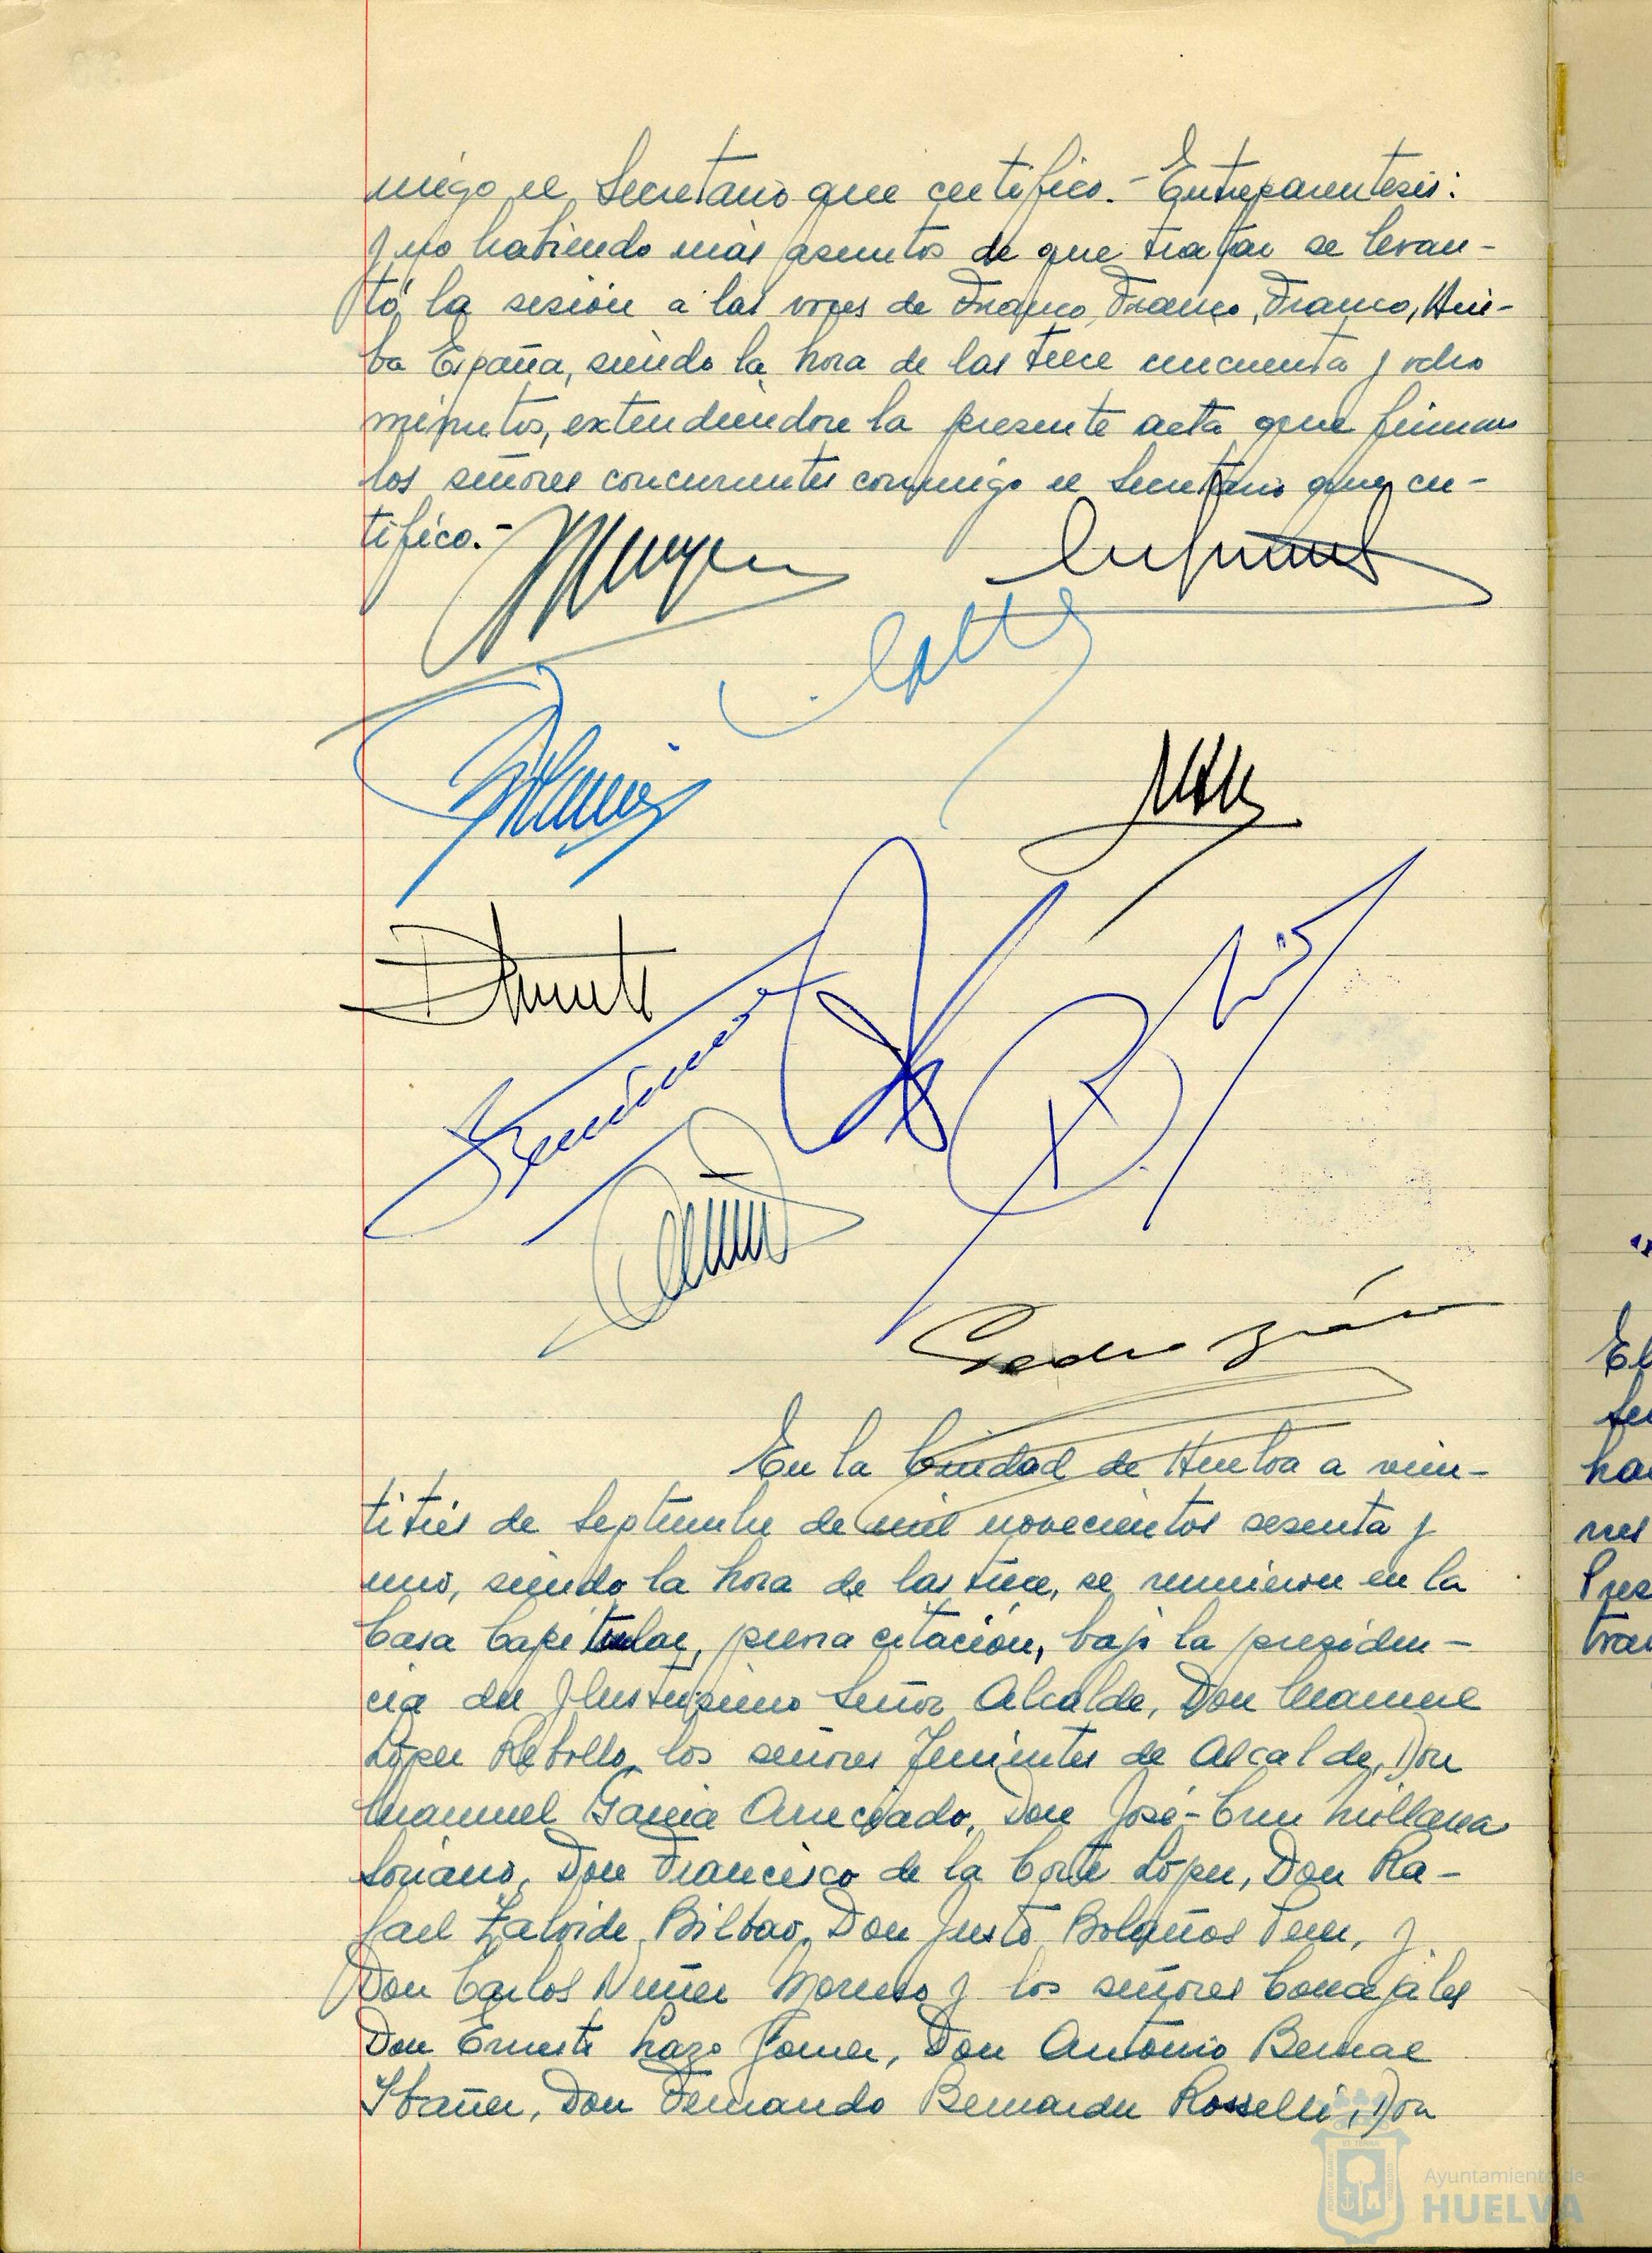 migo el Secretario que certifico.- Entreparentesis:
y no habiendo más asuntos de que tratar se levan-
tó la sesión a las voces de Franco, Franco, Franco, Arri-
ba España, siendo la hora de las trece cincuenta y ocho
minutos, extendiendose la presente acta que firman
los señores concurrentes conmigo el Secretario que cer-
tifico.-
Pedro
En la Ciudad de Huelva a vein-
titrés de Septiembre de mil novecientos sesenta y
uno, siendo la hora de las trece, se reunieron en la
Casa Capitular, previa citación, bajo la presiden-
cia del Ilustrisimo Señor Alcalde, Don Manuel
López Rebollo, los señores Tenientes de Alcalde, Don
Manuel Garcia Arreciado, Don José-Cruz Millana
Soriano, Don Francisco de la Corte López, Don Ra-
fael Zalvide Bilbao, Don Justo Bolaños y
Don Carlos Nuñez Moreno y los señores Concejales
Don Ernesto Lazo Don Antonio Bernal
Ibañez, Don Fernando Bernardez Rosselli, Don
Ayuntamiento de
HUELVA
El